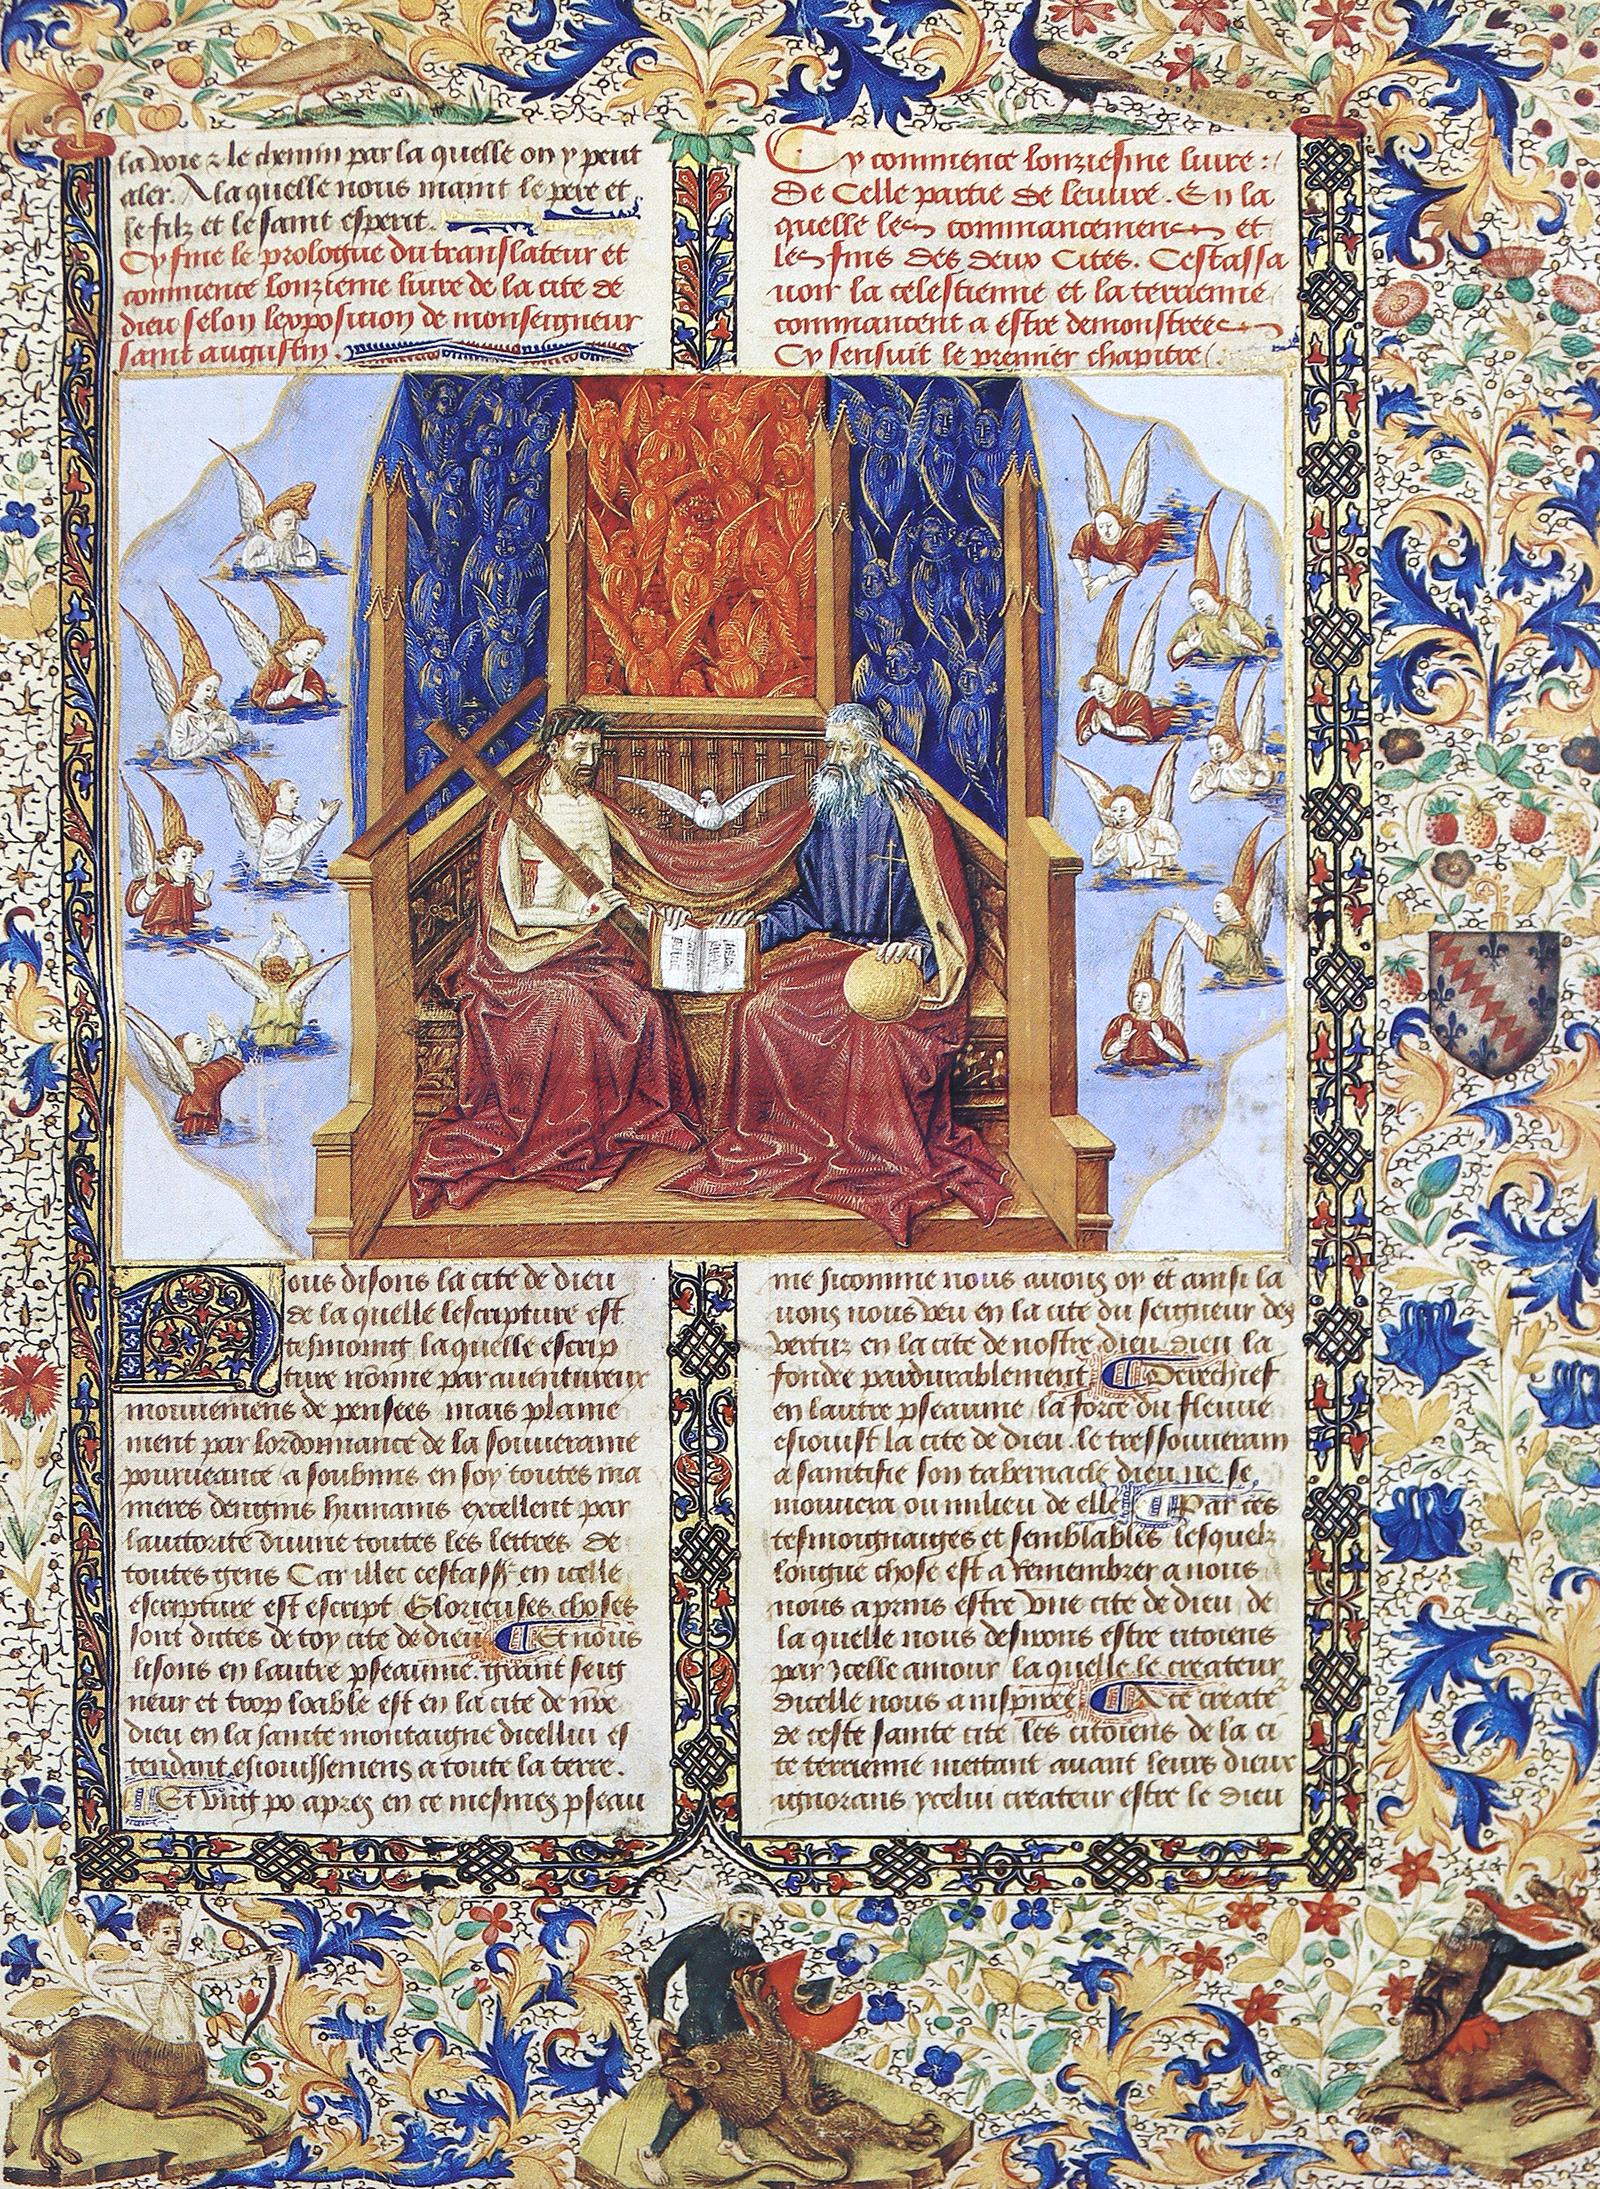 la voie & le chemin par la quelle on y peut
aler. A la quelle nous maint le pere et
le filz et le saint esperit.
Cy fine le prologue du translateur et
commence lonzieme livre de la cite de
dieu selon lexposicion de monseigneur
saint augustin.
Cy commence lonziesme livre :
De Celle partie de leuvre. En la
quelle les commancemens et
les fins des deux Cites. Cestassa
voir la celestienne et la terrienne
commancent a estre demonstrees
Cy sensuit le premier chapitre.
Nous disons la cite de dieu
de la quelle lescripture est
tesmoing la quelle escrip
ture nonne par aventureux
mouvemens de pensees mais plaine
ment par lordonnance de la souveraine
pourveance a soubmis en soy toutes ma
nieres dengins humains excellent par
lauttorite divine toutes les lettres de
toutes gens Car illec cestass en icelle
escripture est escript Glorieuses choses
sont dittes de toy cite de dieu Et nous
lisons en lautre pseaume. grant seig
neur et trop loable est en la cite de nre
dieu en la sainte montaigne dicellui es
tendant esiouissemens a toute la terre.
Et ung po apres en ce mesmes pseau
me sicomme nous avons oy et ainsi la
vons nous veu en la cite du seigneur des
vertuz en la cite de nostre dieu dieu la
fondee pardurablement Derechief
en lautre pseaume la force du fleuve
esiouist la cite de dieu. le tressouverain
a saintifie son tabernacle dieu ne se
mouvera ou milieu de elle Par ces
tesmoignaiges et semblables lesquelz
longue chose est a remembrer a nous
nous aprins estre une cite de dieu de
la quelle nous desirons estre citoiens
par ycelle amour la quelle le createur
dicelle nous a inspiree A ce create
de ceste sainte cite les citoiens de la ci
te terrienne mettant avant leurs dieux
ignorans ycelui createur estre le dieu